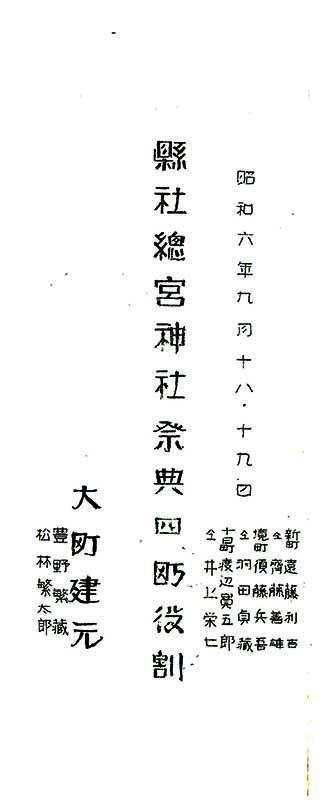 昭和六年九月十八・十九日
縣社總宮神社祭典四町役割
新町 遠藤利吉
仝 齊藤善雄
境町 須藤兵吾
仝 羽田貞藏
十日町 渡辺寅五郎
仝 井上栄七
大町建元
豊野繁藏
松林繁太郎